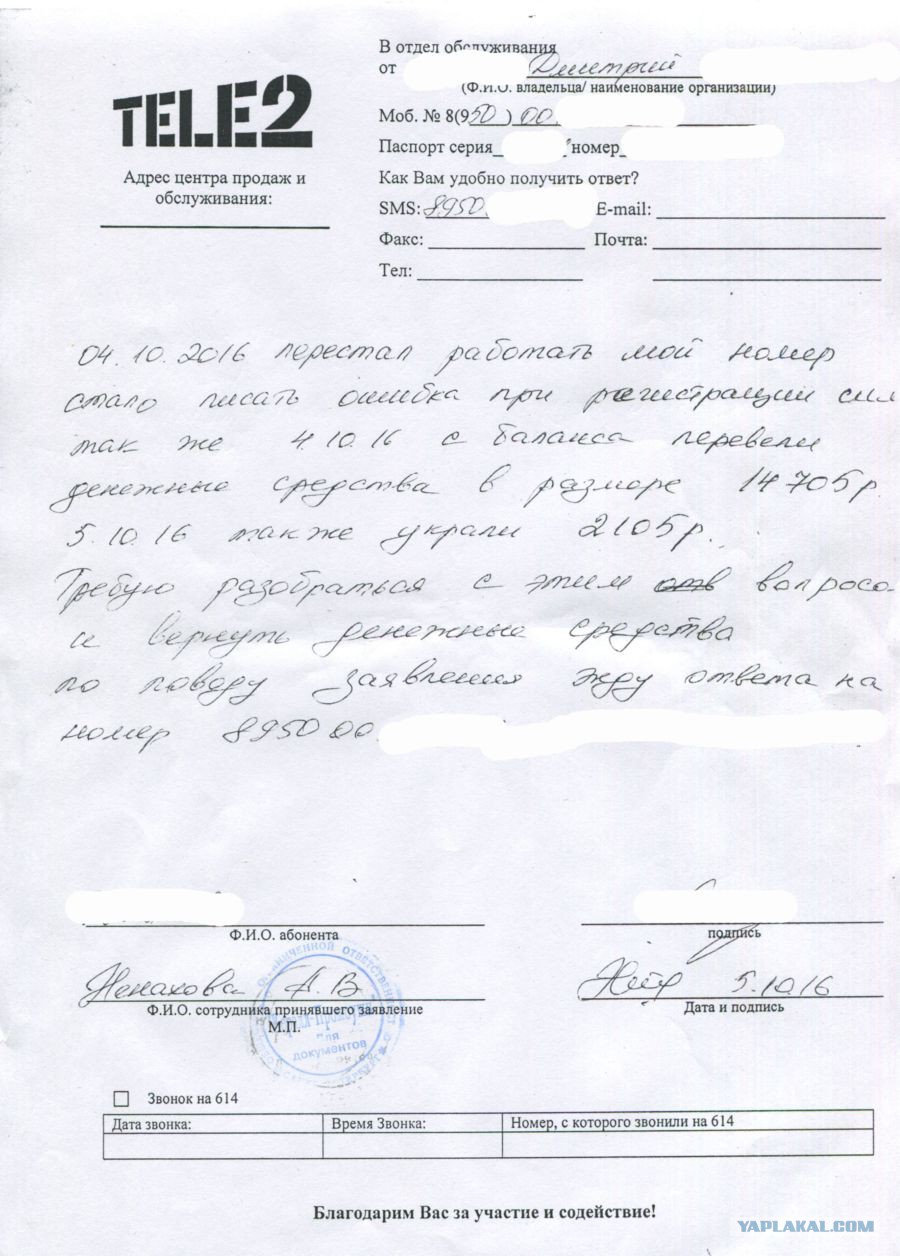 TELE2
Адрес центра продаж и
обслуживания:
В отдел обслуживания
от Дмитрий
(Ф.И.О. владельца/ наименование организации)
Моб. № 8(950) 00
Паспорт серия номер
Как Вам удобно получить ответ?
SMS: 8950 E-mail:
Факс: Почта:
Тел:
04.10.2016 перестал работать мой номер
стало писать ошибка при регистрации сим
так же 4.10.16 с баланса перевели
денежные средства в размере 14705р.
5.10.16 также украли 2105р.
Требую разобраться с этим вопросо
и вернуть денежные средства
по поводу заявления жду ответа на
номер 8950 00
Ф.И.О. абонента
подпись
Ненахова А. В
5.10.16
Ф.И.О. сотрудника принявшего заявление
Дата и подпись
М.П.
для
документов
Звонок на 614
Дата звонка: Время Звонка: Номер, с которого звонили на 614
Благодарим Вас за участие и содействие!
YAPLAKAL.COM